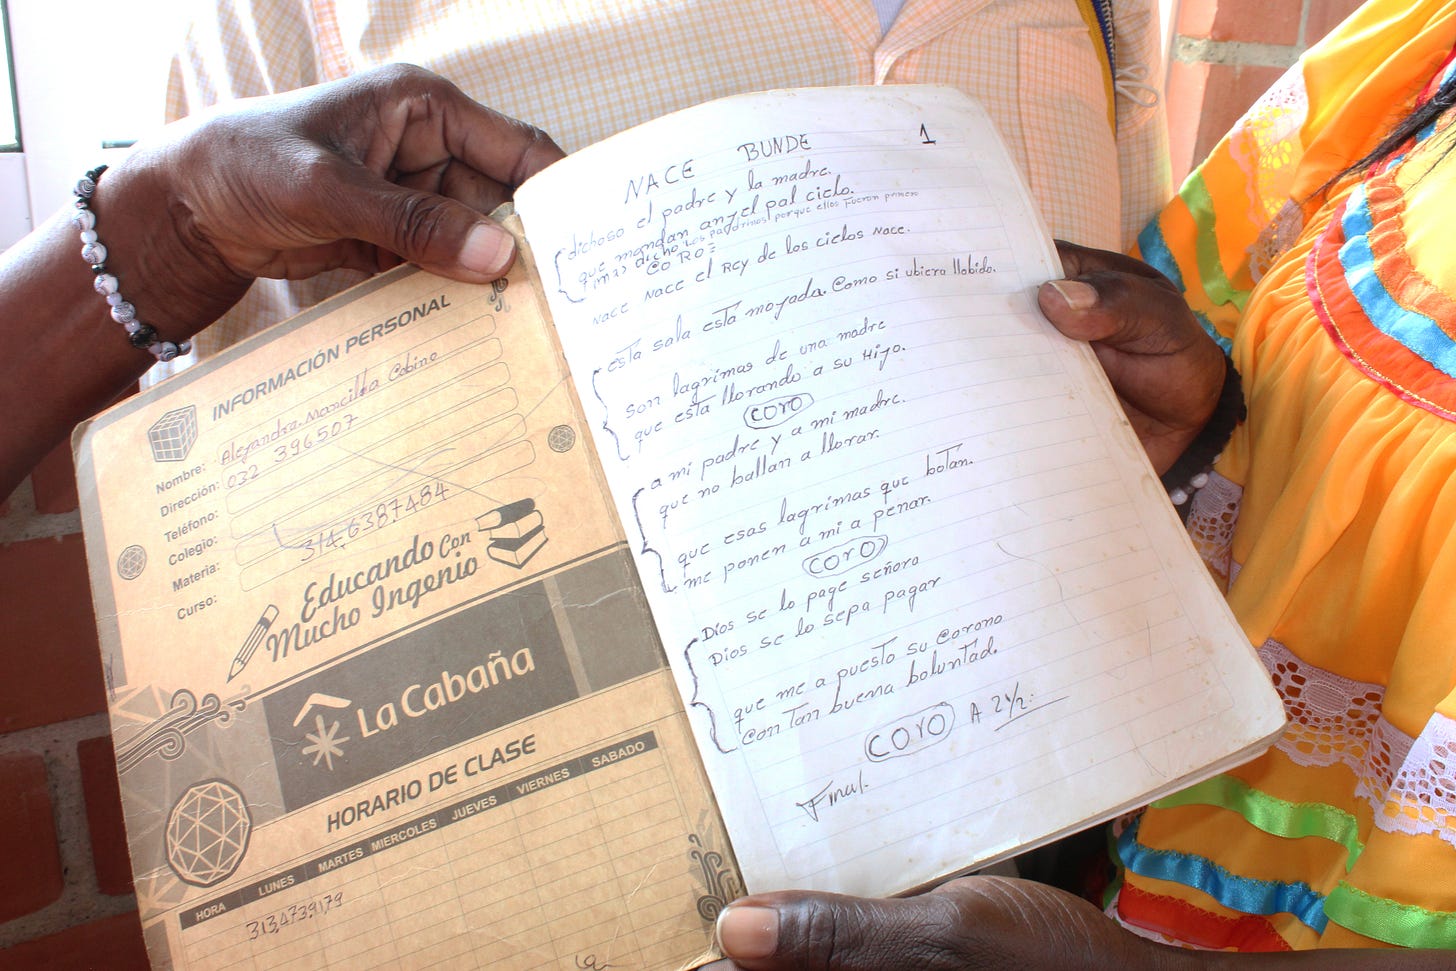 INFORMACIÓN PERSONAL
Nombre: Alejandra Mancilla Cobino
Dirección: 032 396507
Teléfono:
Colegio: 314,6387484
Materia:
Curso:
Educando Con
Mucho Ingenio
La Cabaña
HORARIO DE CLASE
HORA LUNES MARTES MIERCOLES JUEVES VIERNES SABADO
313,4739179
NACE BUNDE 1
dichoso el padre y la madre.
que mandan angel pal cielo.
mas dicho los padrinos porque ellos fueron primero
CORO=
Nace Nace el Rey de los cielos Nace.
esta sala esta moyada. Como si ubiera llobido.
son lagrimas de una madre
que esta llorando a su Hijo.
coro
a mi padre y a mi madre.
que no ballan a llorar.
que esas lagrimas que botan.
me ponen a mi a penar.
coro
Dios se lo page señora
Dios se lo sepa pagar
que me a puesto su corono
con tan buena boluntad.
coro A 2½:
Final.